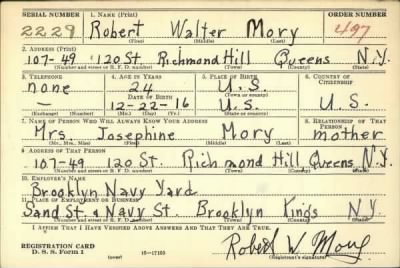 SERIAL NUMBER 1. NAME (Print) ORDER NUMBER
2229 Robert Walter Mory 497
(First) (Middle) (Last)
2. ADDRESS (Print)
107-49 120 St. Richmond Hill Queens N.Y.
(Number and street or R. F. D. number) (Town) (County) (State)
3. TELEPHONE 4. AGE IN YEARS 5. PLACE OF BIRTH 6. COUNTRY OF CITIZENSHIP
none 24 U.S.
DATE OF BIRTH
— 12-22-16 U.S. U.S.
7. NAME OF PERSON WHO WILL ALWAYS KNOW YOUR ADDRESS 8. RELATIONSHIP OF THAT PERSON
Mrs. Josephine Mory mother
(Mr., Mrs., Miss) (First) (Middle) (Last)
9. ADDRESS OF THAT PERSON
107-49 120 St. Richmond Hill, Queens N.Y.
(Number and street or R. F. D. number) (Town) (County) (State)
10. EMPLOYER'S NAME
Brooklyn Navy Yard
11. PLACE OF EMPLOYMENT OR BUSINESS
Sand St. & Navy St. Brooklyn Kings N.Y.
(Number and street or R. F. D. number) (Town) (County) (State)
I AFFIRM THAT I HAVE VERIFIED ABOVE ANSWERS AND THAT THEY ARE TRUE.
REGISTRATION CARD
D. S. S. FORM 1 16—17105 Robert W. Mory
(Registrant's signature)